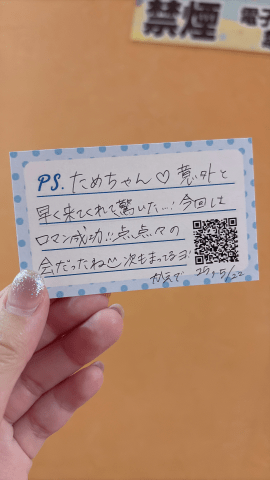 禁煙
電子
PS. ためちゃん♡ 意外と
早く来てくれて驚いた…! 今回は
ロマン成功!! 点点々の
会だったね 次もまってるヨ
かえで 25.5/22